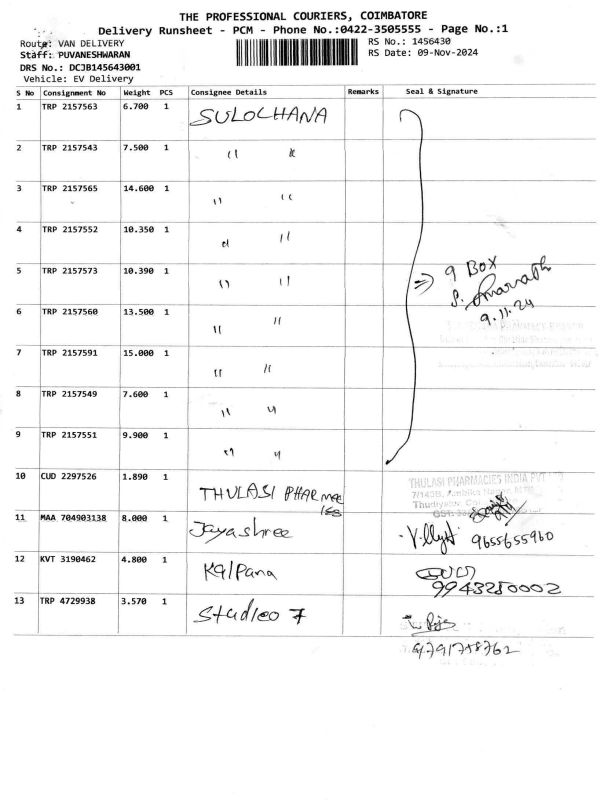 THE PROFESSIONAL COURIERS, COIMBATORE
Delivery Runsheet - PCM - Phone No.:0422-3505555 - Page No.:1
Route: VAN DELIVERY
RS No.: 1456430
Staff: PUVANESHWARAN
RS Date: 09-Nov-2024
DRS No.: DCJB145643001
Vehicle: EV Delivery
S No Consignment No Weight PCS Consignee Details Remarks Seal & Signature
1 TRP 2157563 6.700 1 SULOCHANA
2 TRP 2157543 7.500 1 " "
3 TRP 2157565 14.600 1 " "
4 TRP 2157552 10.350 1 " "
5 TRP 2157573 10.390 1 " " => 9 BOX
9.11.24
6 TRP 2157560 13.500 1 " "
7 TRP 2157591 15.000 1 " "
8 TRP 2157549 7.600 1 " "
9 TRP 2157551 9.900 1 " "
10 CUD 2297526 1.890 1 THULASI PHARmacies
THULASI PHARMACIES INDIA PVT LTD
11 MAA 704903138 8.000 1 Jayashree 9655655960
12 KVT 3190462 4.800 1 Kalpana
9943280002
13 TRP 4729938 3.570 1 Studieo 7
9791748762